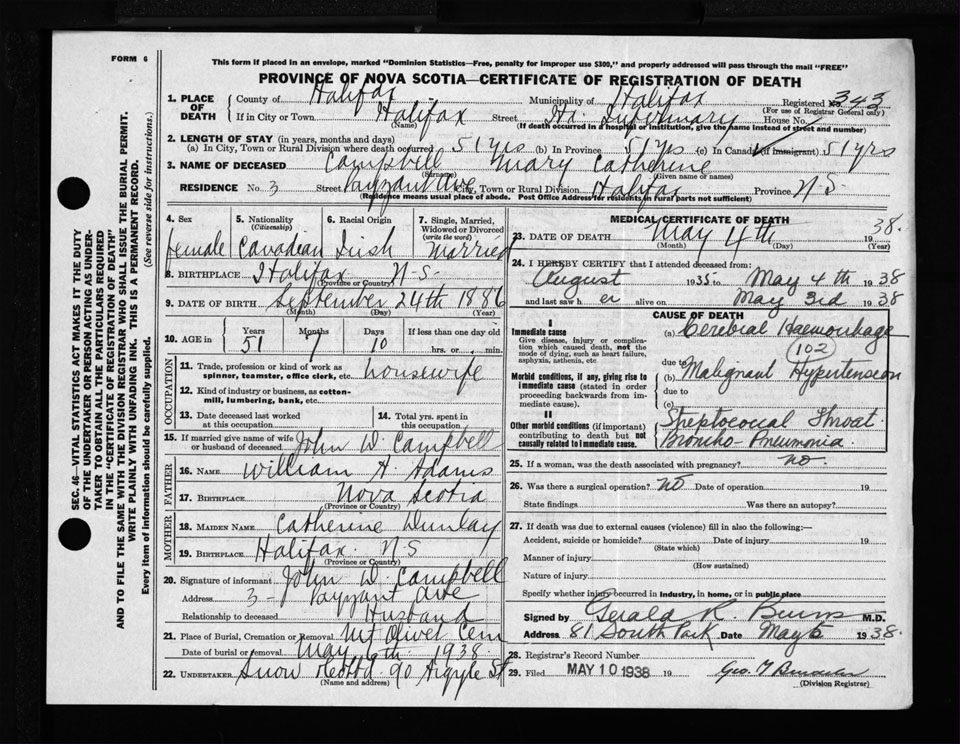 FORM 6
This form if placed in an envelope, marked "Dominion Statistics—Free, penalty for improper use $300," and properly addressed will pass through the mail "FREE"
PROVINCE OF NOVA SCOTIA—CERTIFICATE OF REGISTRATION OF DEATH
SEC. 46—VITAL STATISTICS ACT MAKES IT THE DUTY
OF THE UNDERTAKER OR PERSON ACTING AS UNDER-
TAKER TO OBTAIN ALL THE PARTICULARS REQUIRED
IN THE "CERTIFICATE OF REGISTRATION OF DEATH"
AND TO FILE THE SAME WITH THE DIVISION REGISTRAR WHO SHALL ISSUE THE BURIAL PERMIT.
WRITE PLAINLY WITH UNFADING INK. THIS IS A PERMANENT RECORD.
Every item of information should be carefully supplied. (See reverse side for instructions.)
1. PLACE OF DEATH County of Halifax Municipality of Halifax Registered No. 343
(For use of Registrar General only)
If in City or Town Halifax Street Hx. Infirmary House No.
(Name) (If death occurred in a hospital or institution, give the name instead of street and number)
2. LENGTH OF STAY (in years, months and days)
(a) In City, Town or Rural Division where death occurred 51 yrs (b) In Province 51 yrs (c) In Canada (if immigrant) 51 yrs
3. NAME OF DECEASED Campbell Mary Catherine
(Surname) (Given name or names)
RESIDENCE No. 3 Street Payzant Ave City, Town or Rural Division Halifax Province N.S.
(Residence means usual place of abode. Post Office Address for residents in rural parts not sufficient)
4. Sex 5. Nationality (Citizenship) 6. Racial Origin 7. Single, Married, Widowed or Divorced (write the word)
female Canadian Irish Married
8. BIRTHPLACE Halifax N.S.
(Province or Country)
9. DATE OF BIRTH September 24th 1886
(Month) (Day) (Year)
10. AGE in Years Months Days If less than one day old
51 7 10 hrs. or min.
OCCUPATION
11. Trade, profession or kind of work as spinner, teamster, office clerk, etc. housewife
12. Kind of industry or business, as cotton-mill, lumbering, bank, etc.
13. Date deceased last worked at this occupation 14. Total yrs. spent in this occupation
15. If married give name of wife or husband of deceased John W. Campbell
FATHER
16. Name William A. Adams
17. Birthplace Nova Scotia
(Province or Country)
MOTHER
18. MAIDEN NAME Catherine Dunlay
19. BIRTHPLACE Halifax. N.S
(Province or Country)
20. Signature of informant John W. Campbell
Address 3 - Payzant Ave
Relationship to deceased Husband
21. Place of Burial, Cremation or Removal Mt Olivet Cem
Date of burial or removal May 6th 1938
22. UNDERTAKER Snow & Co Ltd 90 Argyle St
(Name and address)
MEDICAL CERTIFICATE OF DEATH
23. DATE OF DEATH May 4th 1938.
(Month) (Day) (Year)
24. I HEREBY CERTIFY that I attended deceased from:
August 1935 to May 4th 1938
and last saw her alive on May 3rd 1938
CAUSE OF DEATH
I
Immediate cause
Give disease, injury or complication which caused death, not the mode of dying, such as heart failure, asphyxia, asthenia, etc.
(a) Cerebral Haemorrhage
102
due to
Morbid conditions, if any, giving rise to immediate cause (stated in order proceeding backwards from immediate cause).
(b) Malignant Hypertension
due to
(c)
II
Other morbid conditions (if important) contributing to death but not causally related to immediate cause.
Streptococcal Throat.
Broncho-Pneumonia.
25. If a woman, was the death associated with pregnancy? no.
26. Was there a surgical operation? no Date of operation 19
State findings Was there an autopsy?
27. If death was due to external causes (violence) fill in also the following:—
Accident, suicide or homicide? Date of injury 19
(State which)
Manner of injury
(How sustained)
Nature of injury
Specify whether injury occurred in industry, in home, or in public place
Signed by Gerald R. Burns M.D.
Address 81 South Park Date May 5 1938.
28. Registrar's Record Number
29. Filed MAY 10 1938 19
(Division Registrar)